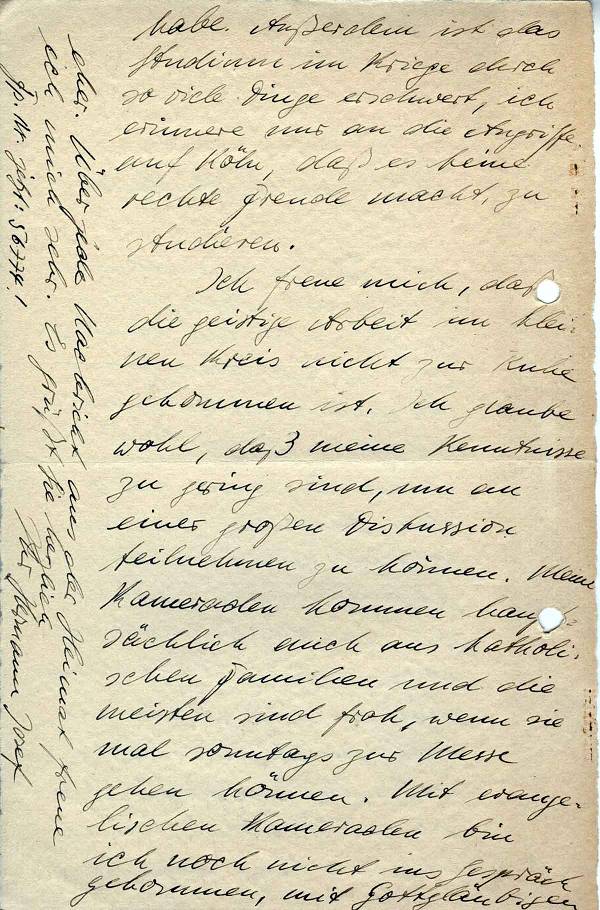 habe. Außerdem ist das
Studium im Kriege durch
so viele Dinge erschwert, ich
erinnere nur an die Angriffe
auf Köln, daß es keine
rechte Freude macht, zu
studieren.
Ich freue mich, daß
die geistige Arbeit im klei-
nen Kreis nicht zur Ruhe
gekommen ist. Ich glaube
wohl, daß meine Kenntnisse
zu gering sind, um an
einer großen Diskussion
teilnehmen zu können. Meine
Kameraden kommen haupt-
sächlich auch aus katholi-
schen Familien und die
meisten sind froh, wenn sie
mal sonntags zur Messe
gehen können. Mit evange-
lischen Kameraden bin
ich noch nicht ins Gespräch
gekommen, mit Gottgläubigen
eher. Über jede Nachricht aus der Heimat freue
ich mich sehr. Es grüßt Sie herzlich
Ihr Hermann Josef
Fp. Nr. jetzt: 56774!